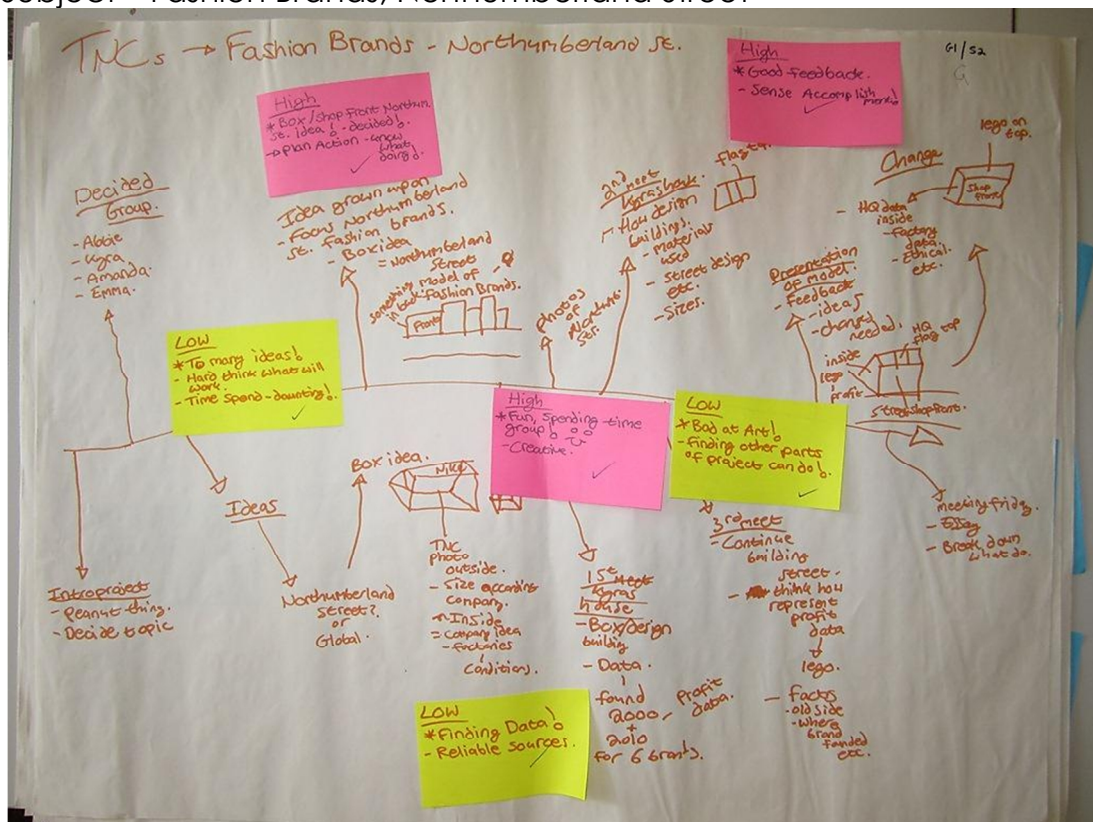 TNCs → Fashion Brands - Northumberland St.
G1/S2
High
* Box/shop front Northum.
St. idea! - decided!
→ plan Action - know
what
doing!
High
* Good feedback.
- Sense Accomplishment!
Decided
Group.
- Abbie
- Kyra
- Amanda.
- Emma.
Idea grown upon
- Focus Northumberland
St. fashion brands.
- Box idea
= Northumberland
Street
something model of
in back. Fashion Brands.
Front
photos
of
Northum.
str.
2nd meet
Kyras house.
- How design
buildings.
- materials
used
- street design
etc.
- sizes.
flag top.
Change
lego on
top.
Shop
front
- HQ data
inside
- factory
data.
- Ethical.
etc.
Presentation
of model.
- Feedback
- ideas
- changed
needed.
HQ
flag top
inside
lego
profit
street shop front.
LOW
* To many ideas!
- Hard think what will
work.
- Time spend - daunting!
High
* Fun, spending time
group!
- Creative.
LOW
* Bad at Art!
- Finding other parts
of project can do!
Intro project
- Peanut thing.
- Decide topic
Ideas
Northumberland
Street?
or
Global.
Box idea.
Nike
TNC
photo
outside.
- Size according
company.
- Inside
= company idea
- factories
conditions.
1st meet
Kyras
house
- Box/design
building
- Data.
found
2000
+
2010
profit
data.
for 6 brands.
3rd meet
- Continue
building
street.
- think how
represent
profit
data
lego.
- Facts
- old side
- where
brand
founded
etc.
meeting friday.
- Essay
- Break down
what do.
LOW
* Finding Data!
- Reliable sources.